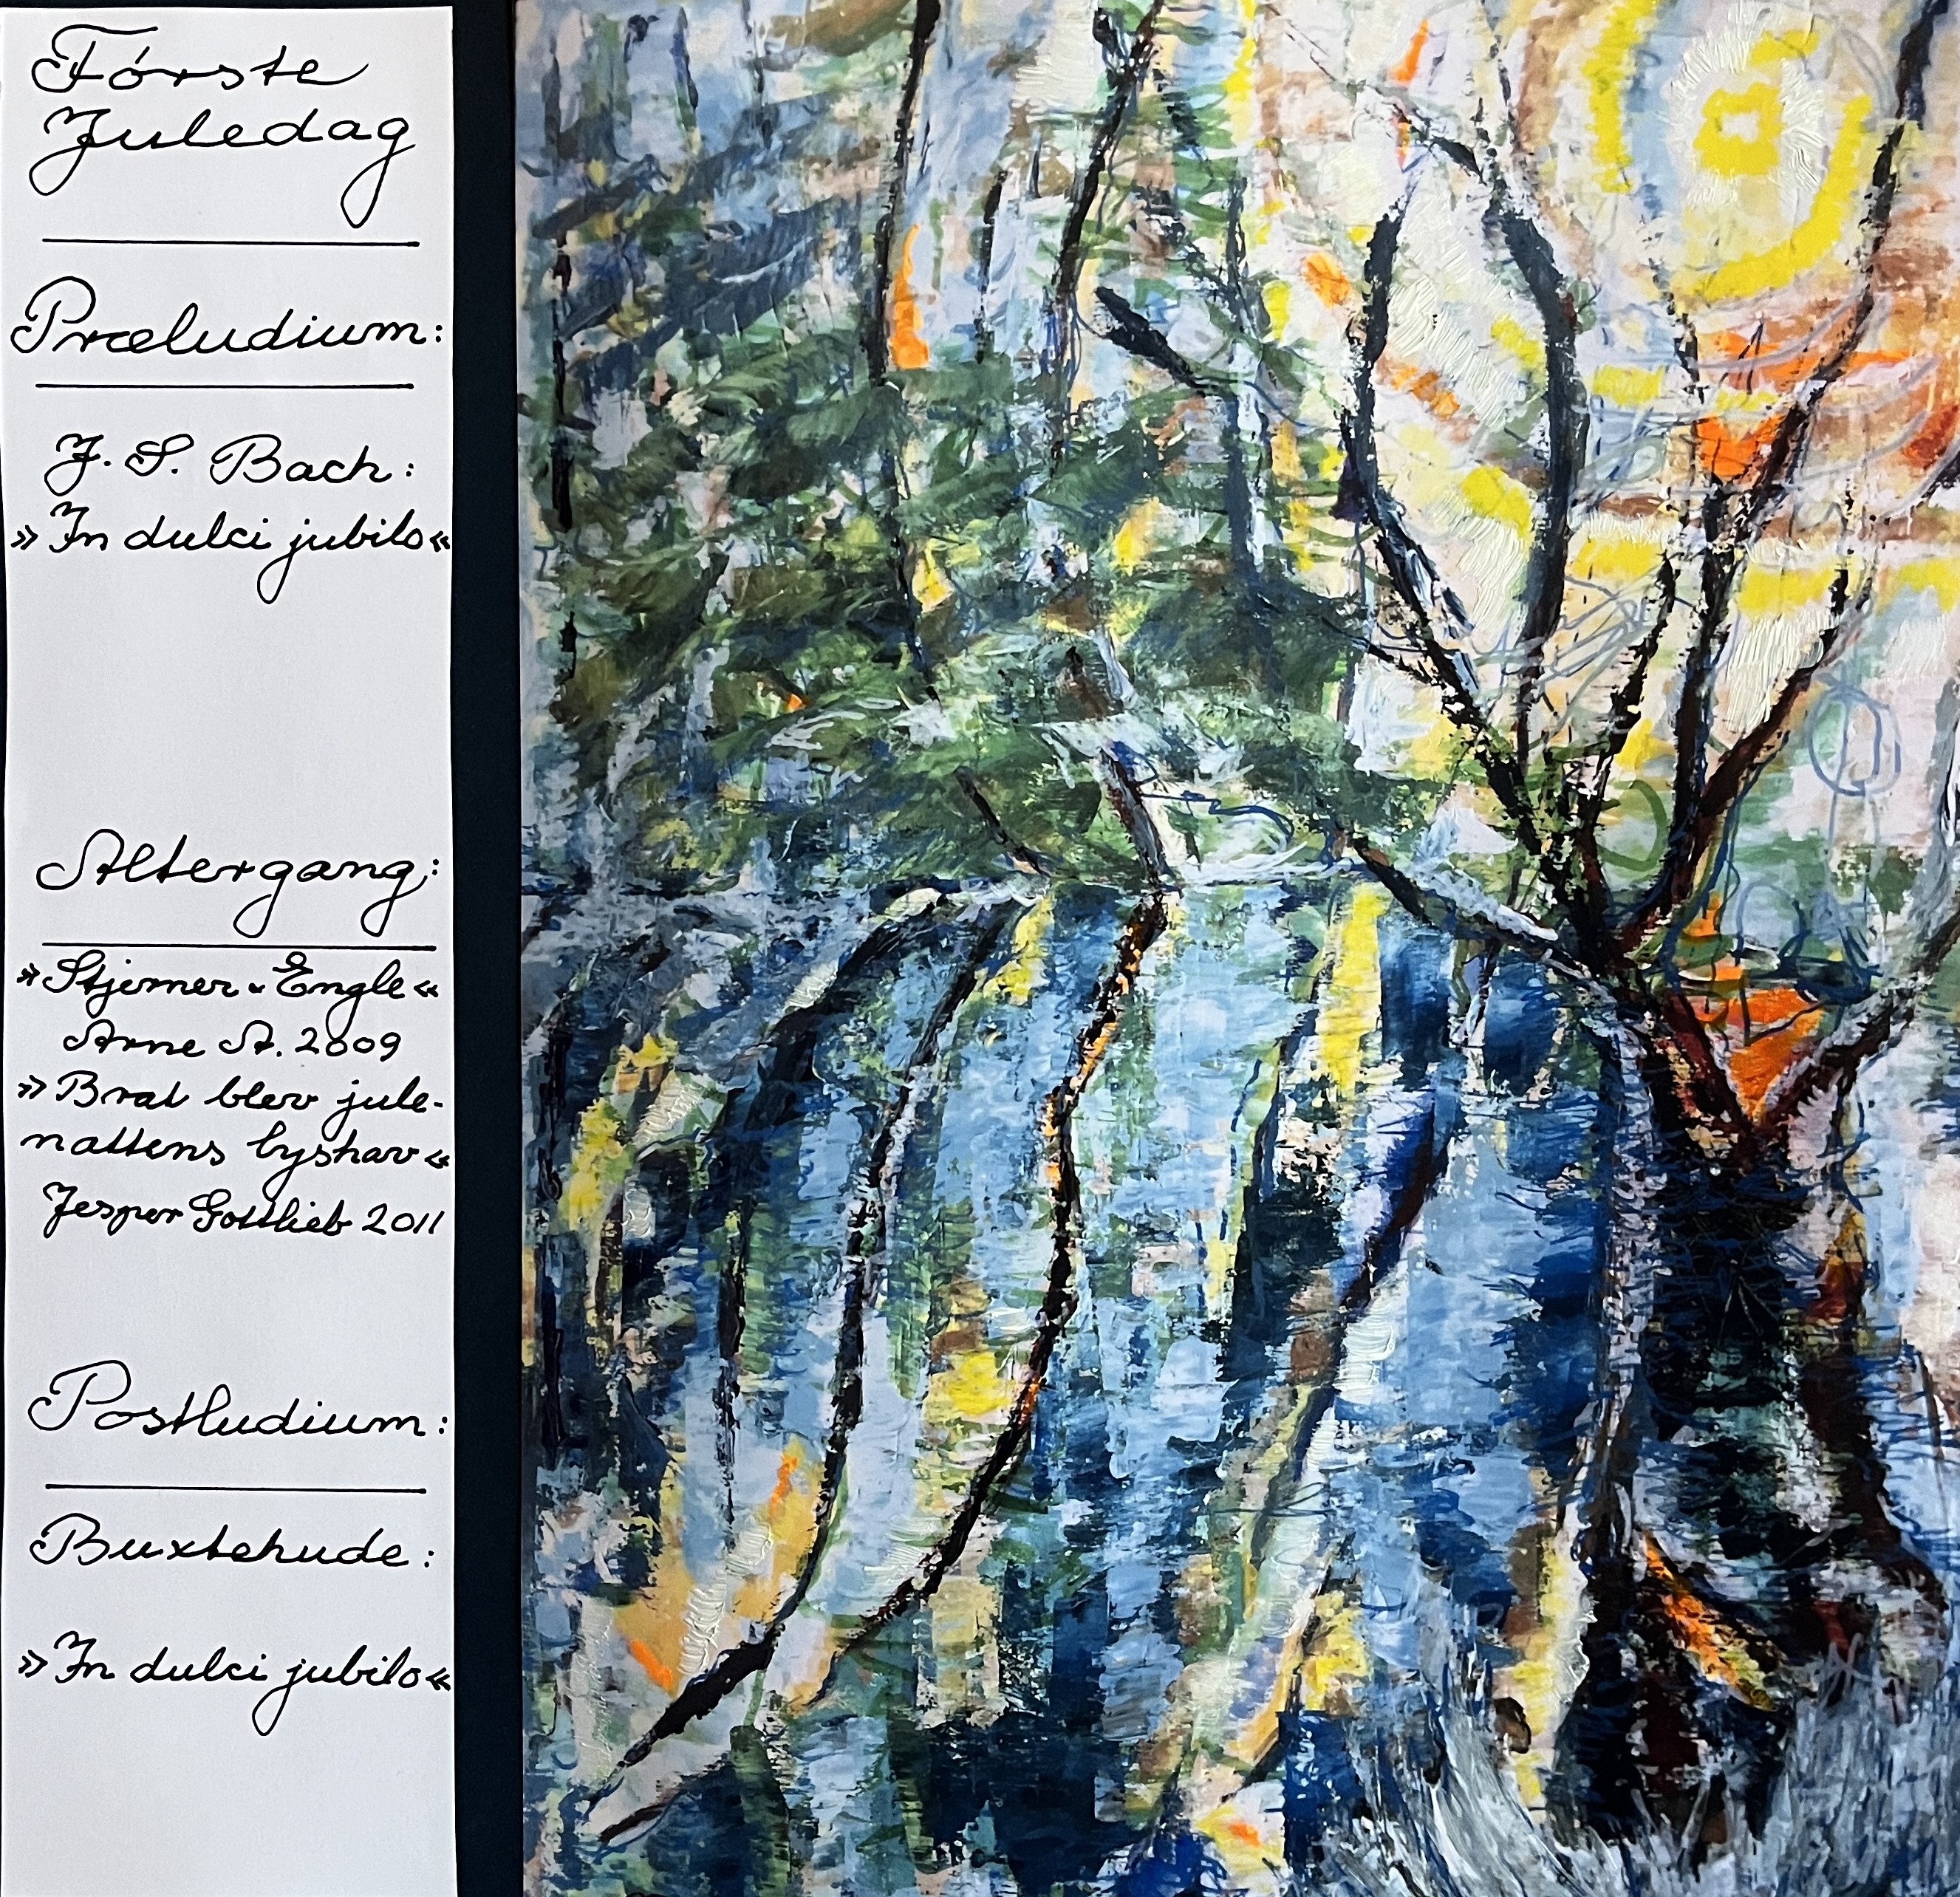 Første
Juledag
Præludium:
J. S. Bach:
»In dulci jubilo«
Altergang:
»Stjerner & Engle«
Arne A. 2009
»Brat blev jule-
nattens lyshav«
Jesper Gottlieb 2011
Postludium:
Buxtehude:
»In dulci jubilo«